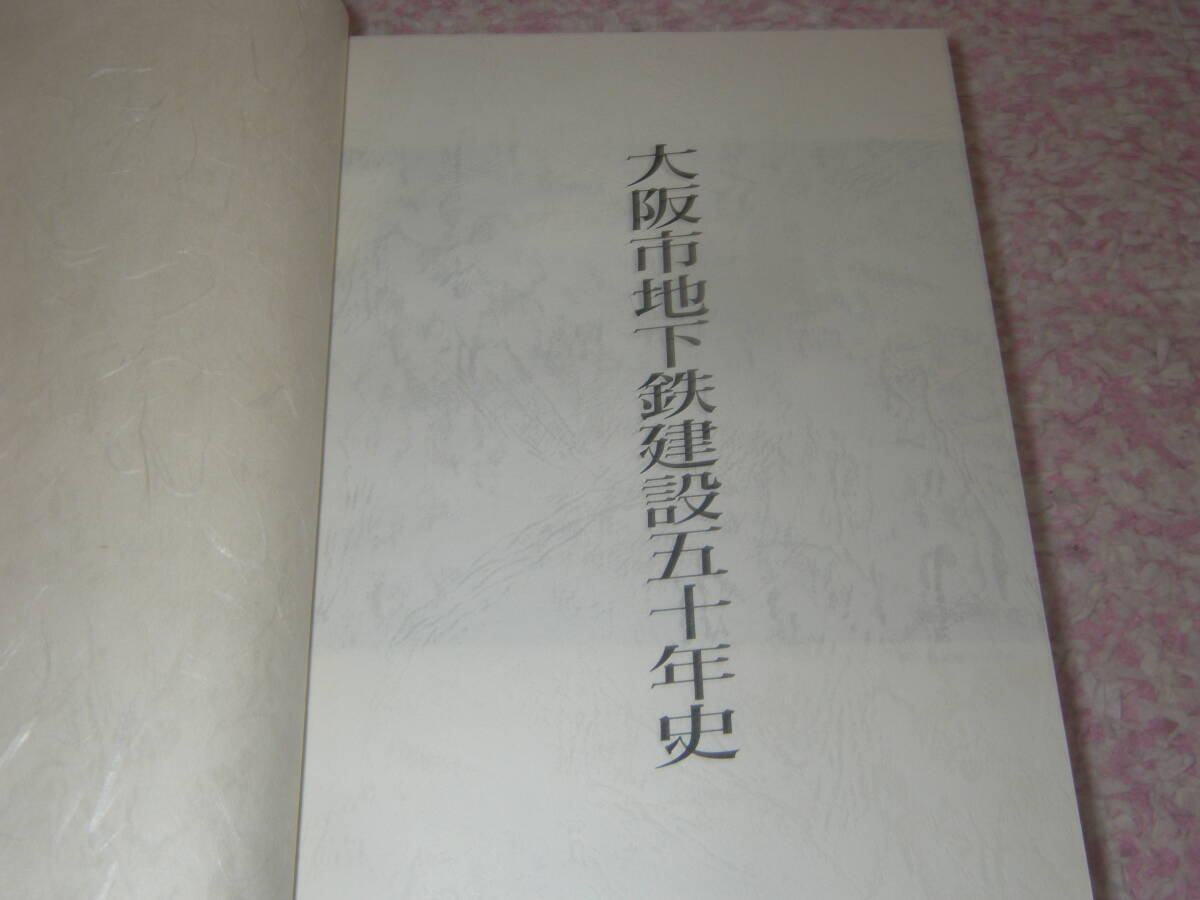 大阪市地下鉄建設五十年史